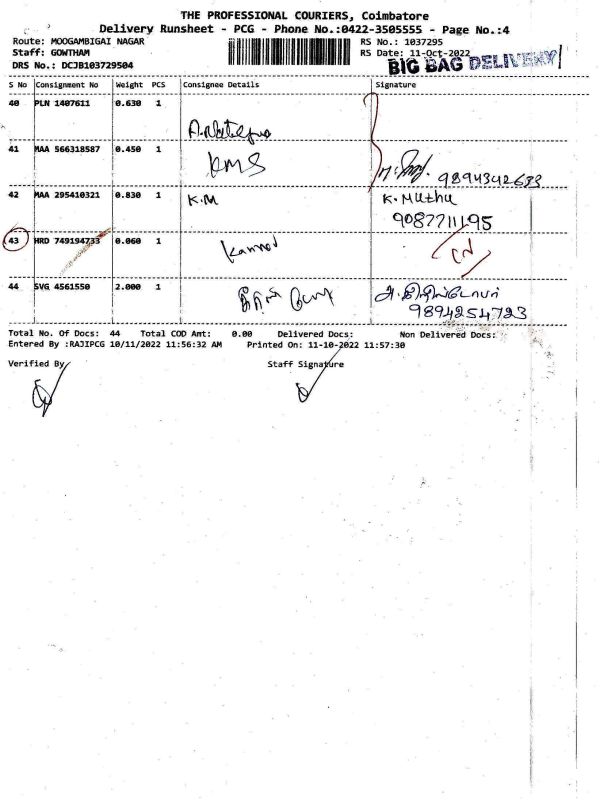 THE PROFESSIONAL COURIERS, Coimbatore
Delivery Runsheet - PCG - Phone No.:0422-3505555 - Page No.:4
Route: MOOGAMBIGAI NAGAR RS No.: 1037295
Staff: GOWTHAM RS Date: 11-Oct-2022
DRS No.: DCJB103729504 BIG BAG DELIVERY
S No Consignment No Weight PCS Consignee Details Signature
40 PLN 1407611 0.630 1
41 MAA 566318587 0.450 1 KMS 9894342633
42 MAA 295410321 0.830 1 K.M K. Muthu
9087711195
43 HRD 749194733 0.060 1
44 SVG 4561550 2.000 1
9894254723
Total No. Of Docs: 44 Total COD Amt: 0.00 Delivered Docs: Non Delivered Docs:
Entered By :RAJIPCG 10/11/2022 11:56:32 AM Printed On: 11-10-2022 11:57:30
Verified By Staff Signature